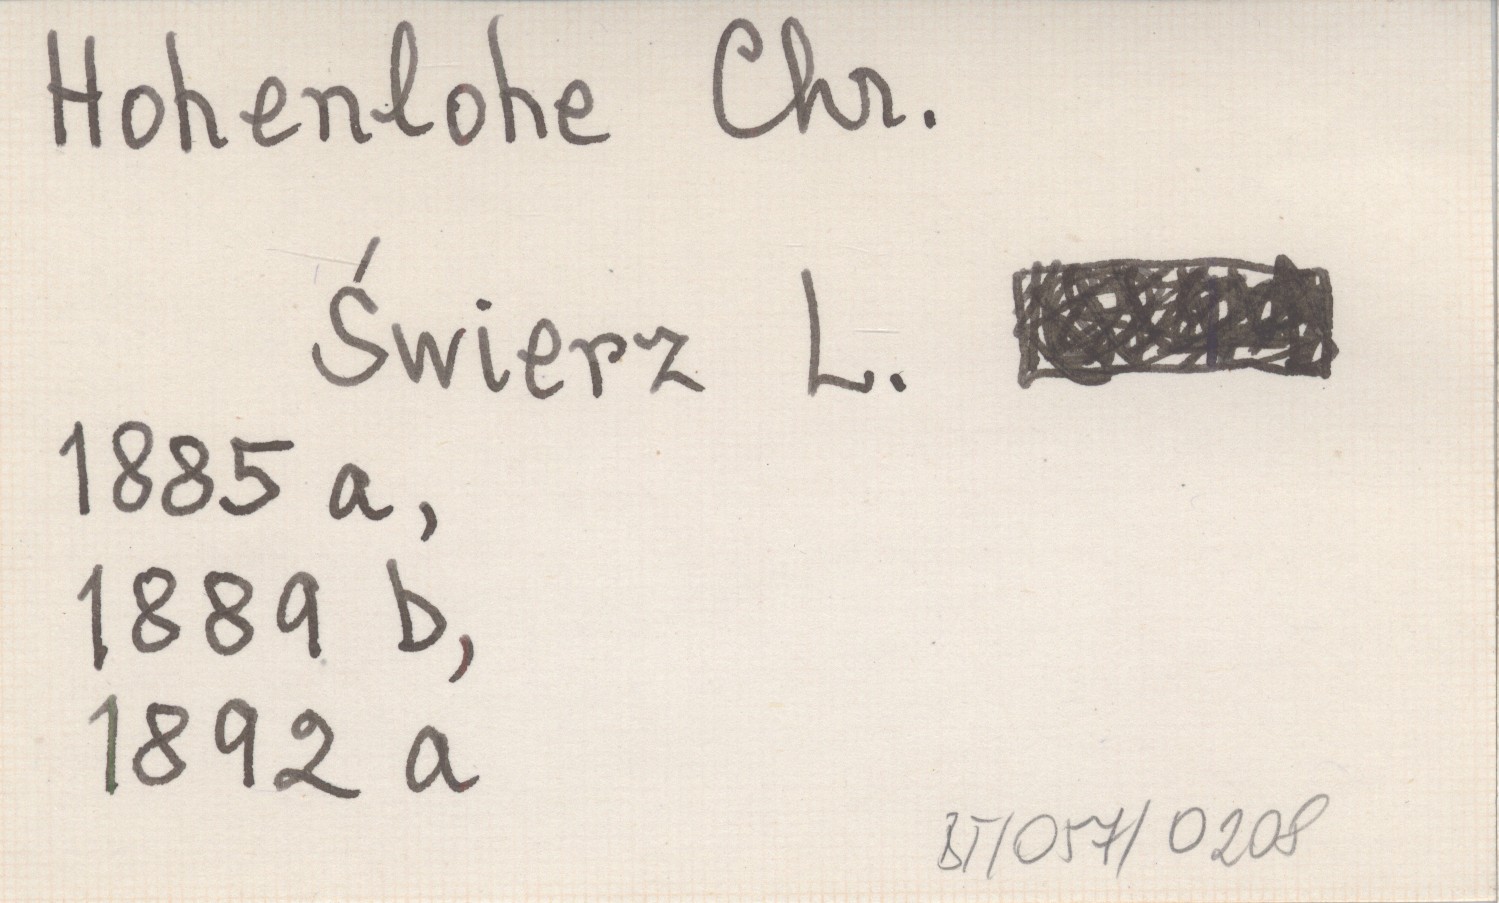 Hohenlohe Chr.
Świerz L.
1885 a,
1889 b,
1892 a
BT/057/0208